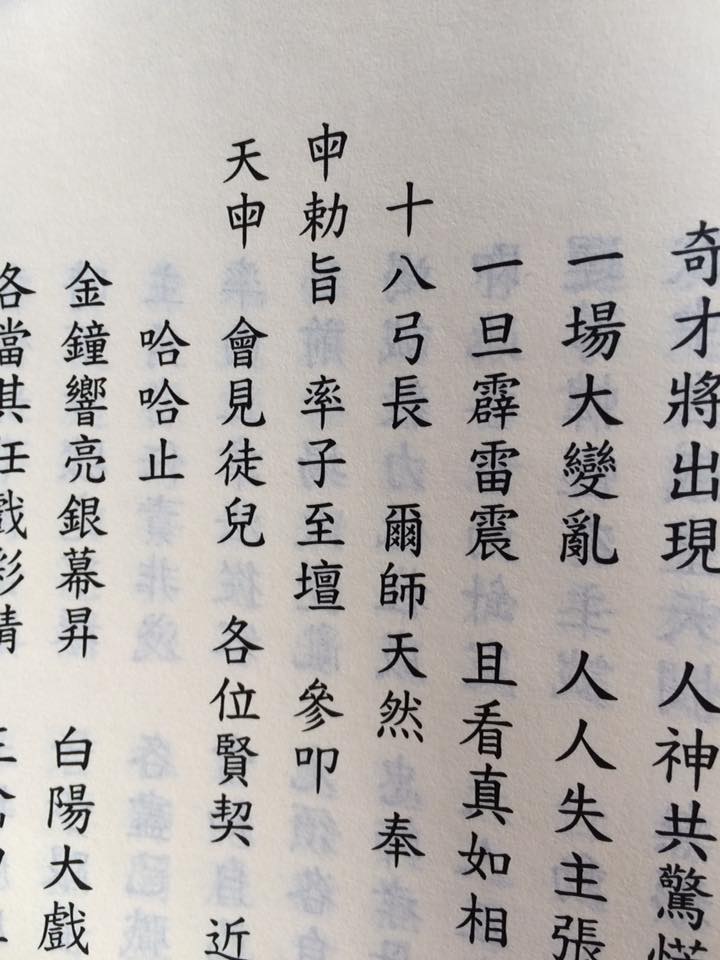 奇才將出現　人神共驚慌
一場大變亂　人人失主張
一旦霹雷震　且看真如相
十八弓長　爾師天然　奉
勅旨　率子至壇　參叩
天　會見徒兒　各位賢契　近
哈哈止
金鐘響亮銀幕昇　白陽大戲
各當其任戲彩